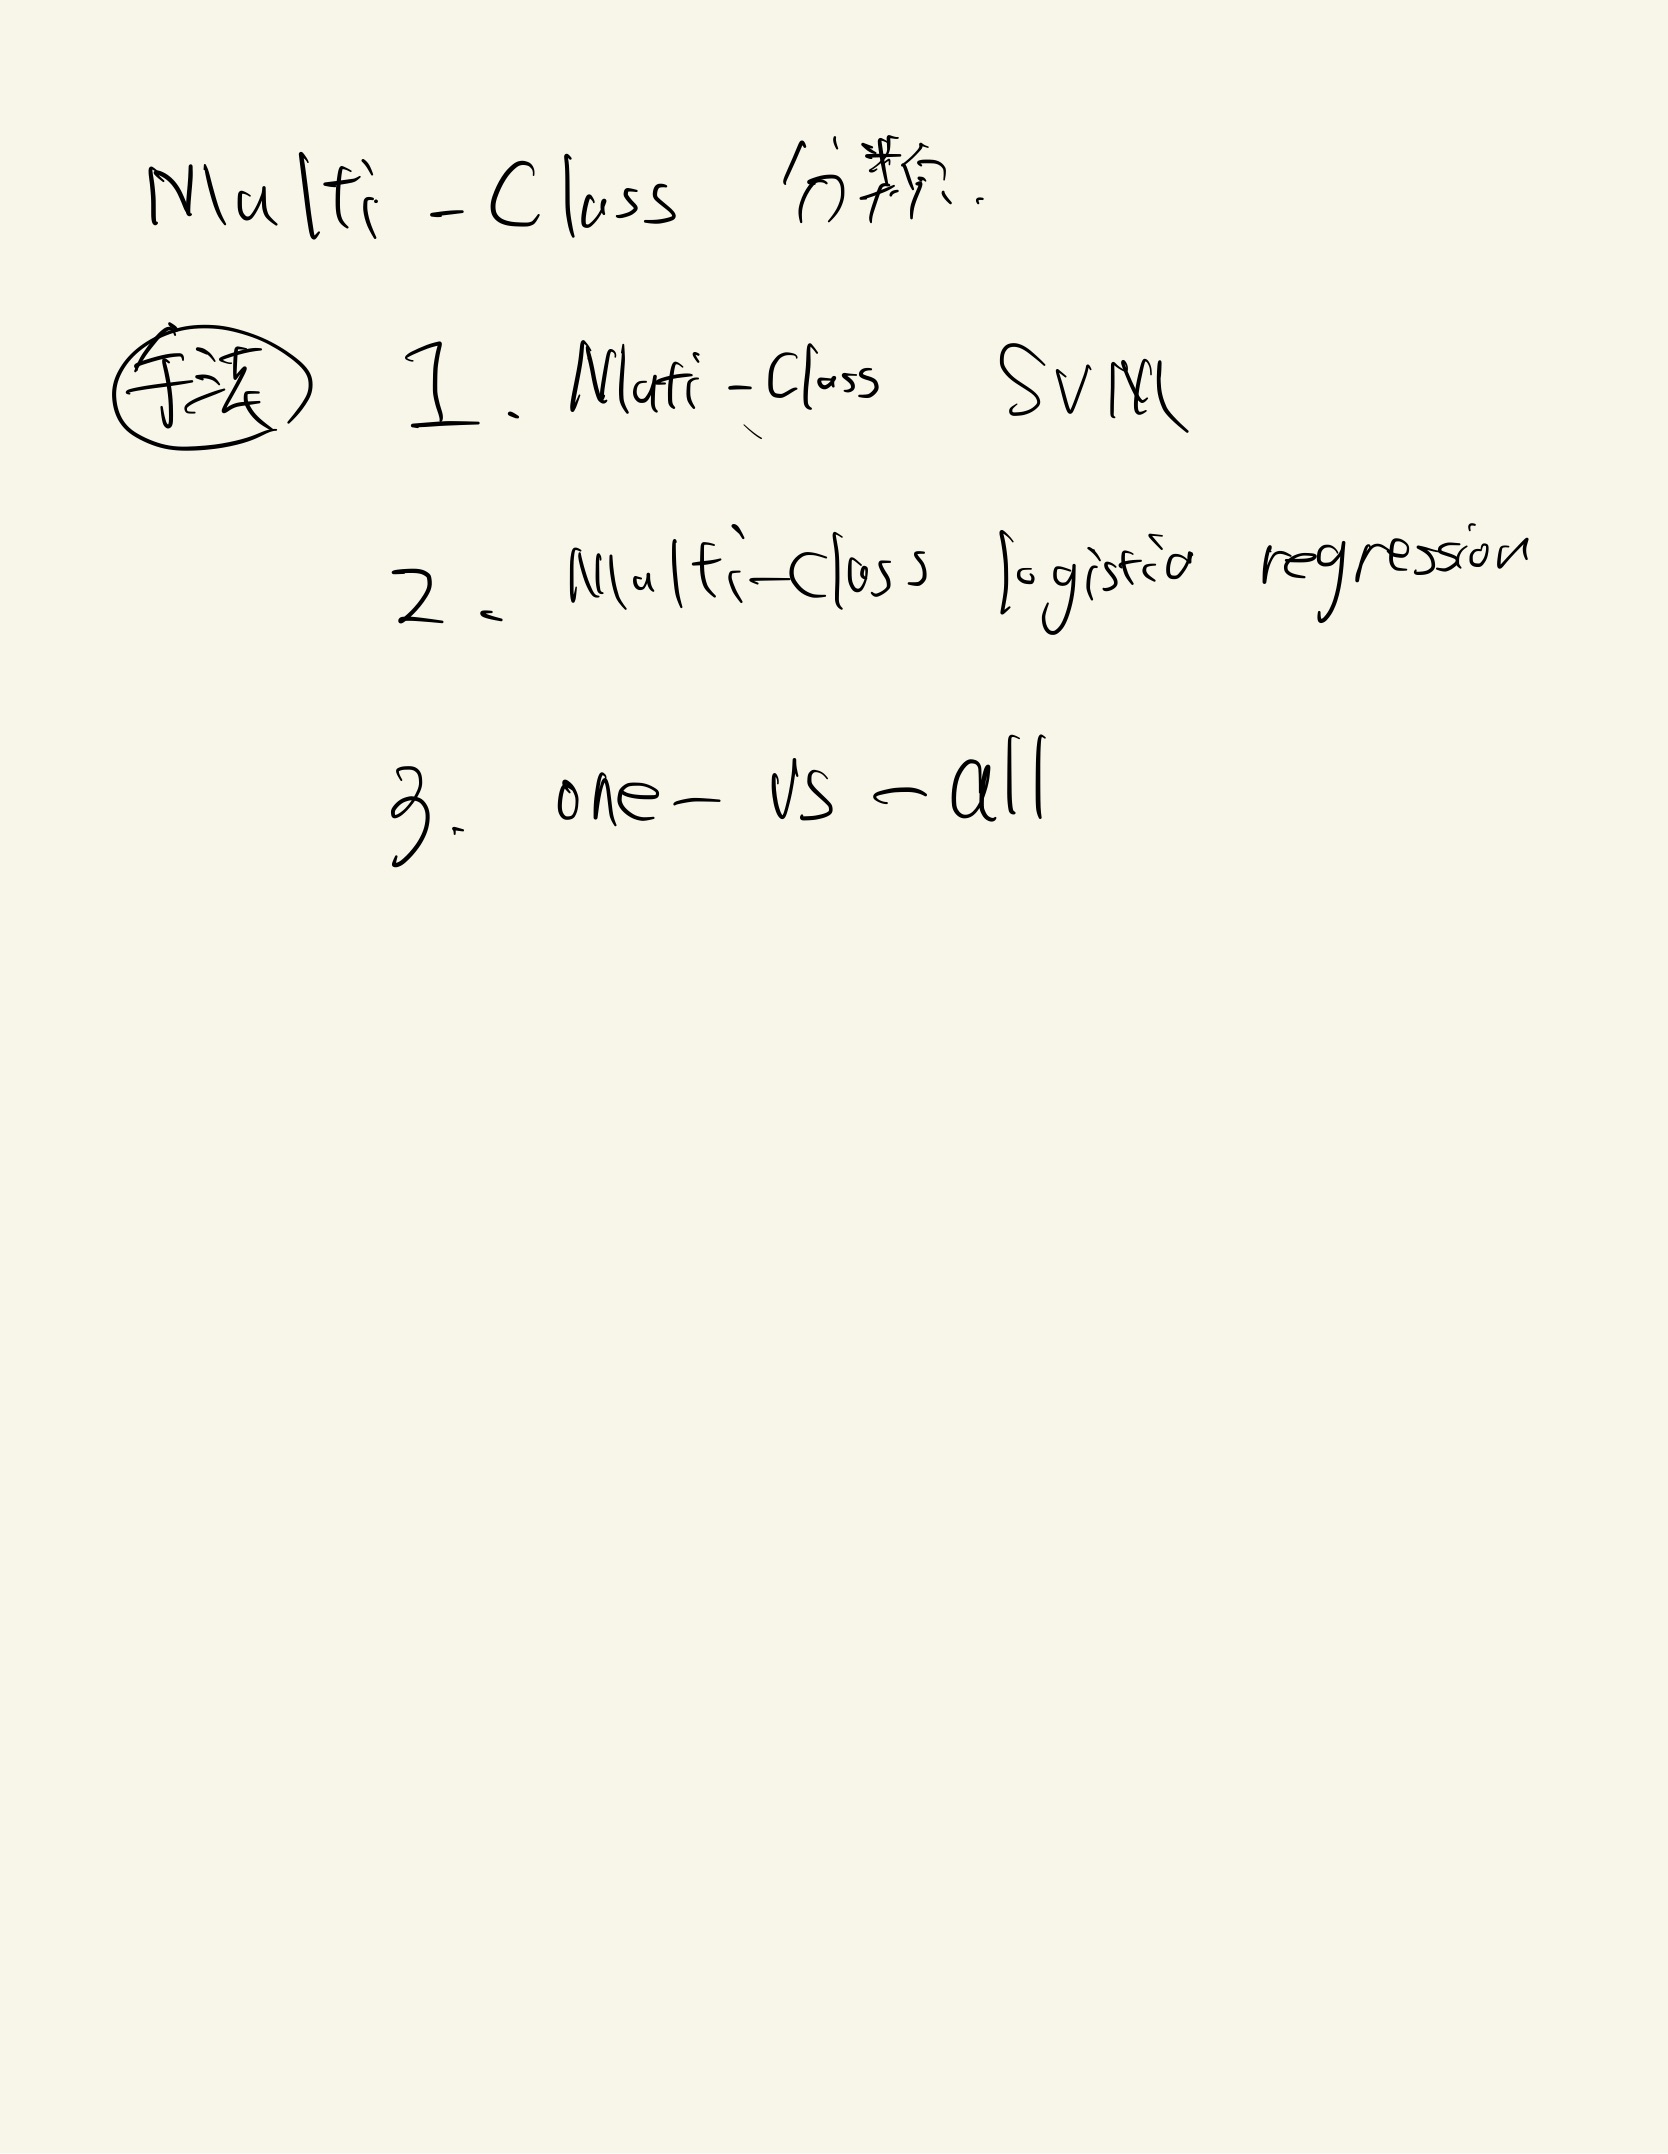 Multi-Class 分数.
手法 1. Multi-Class SVM
2. Multi-Class logistic regression
3. one-vs-all